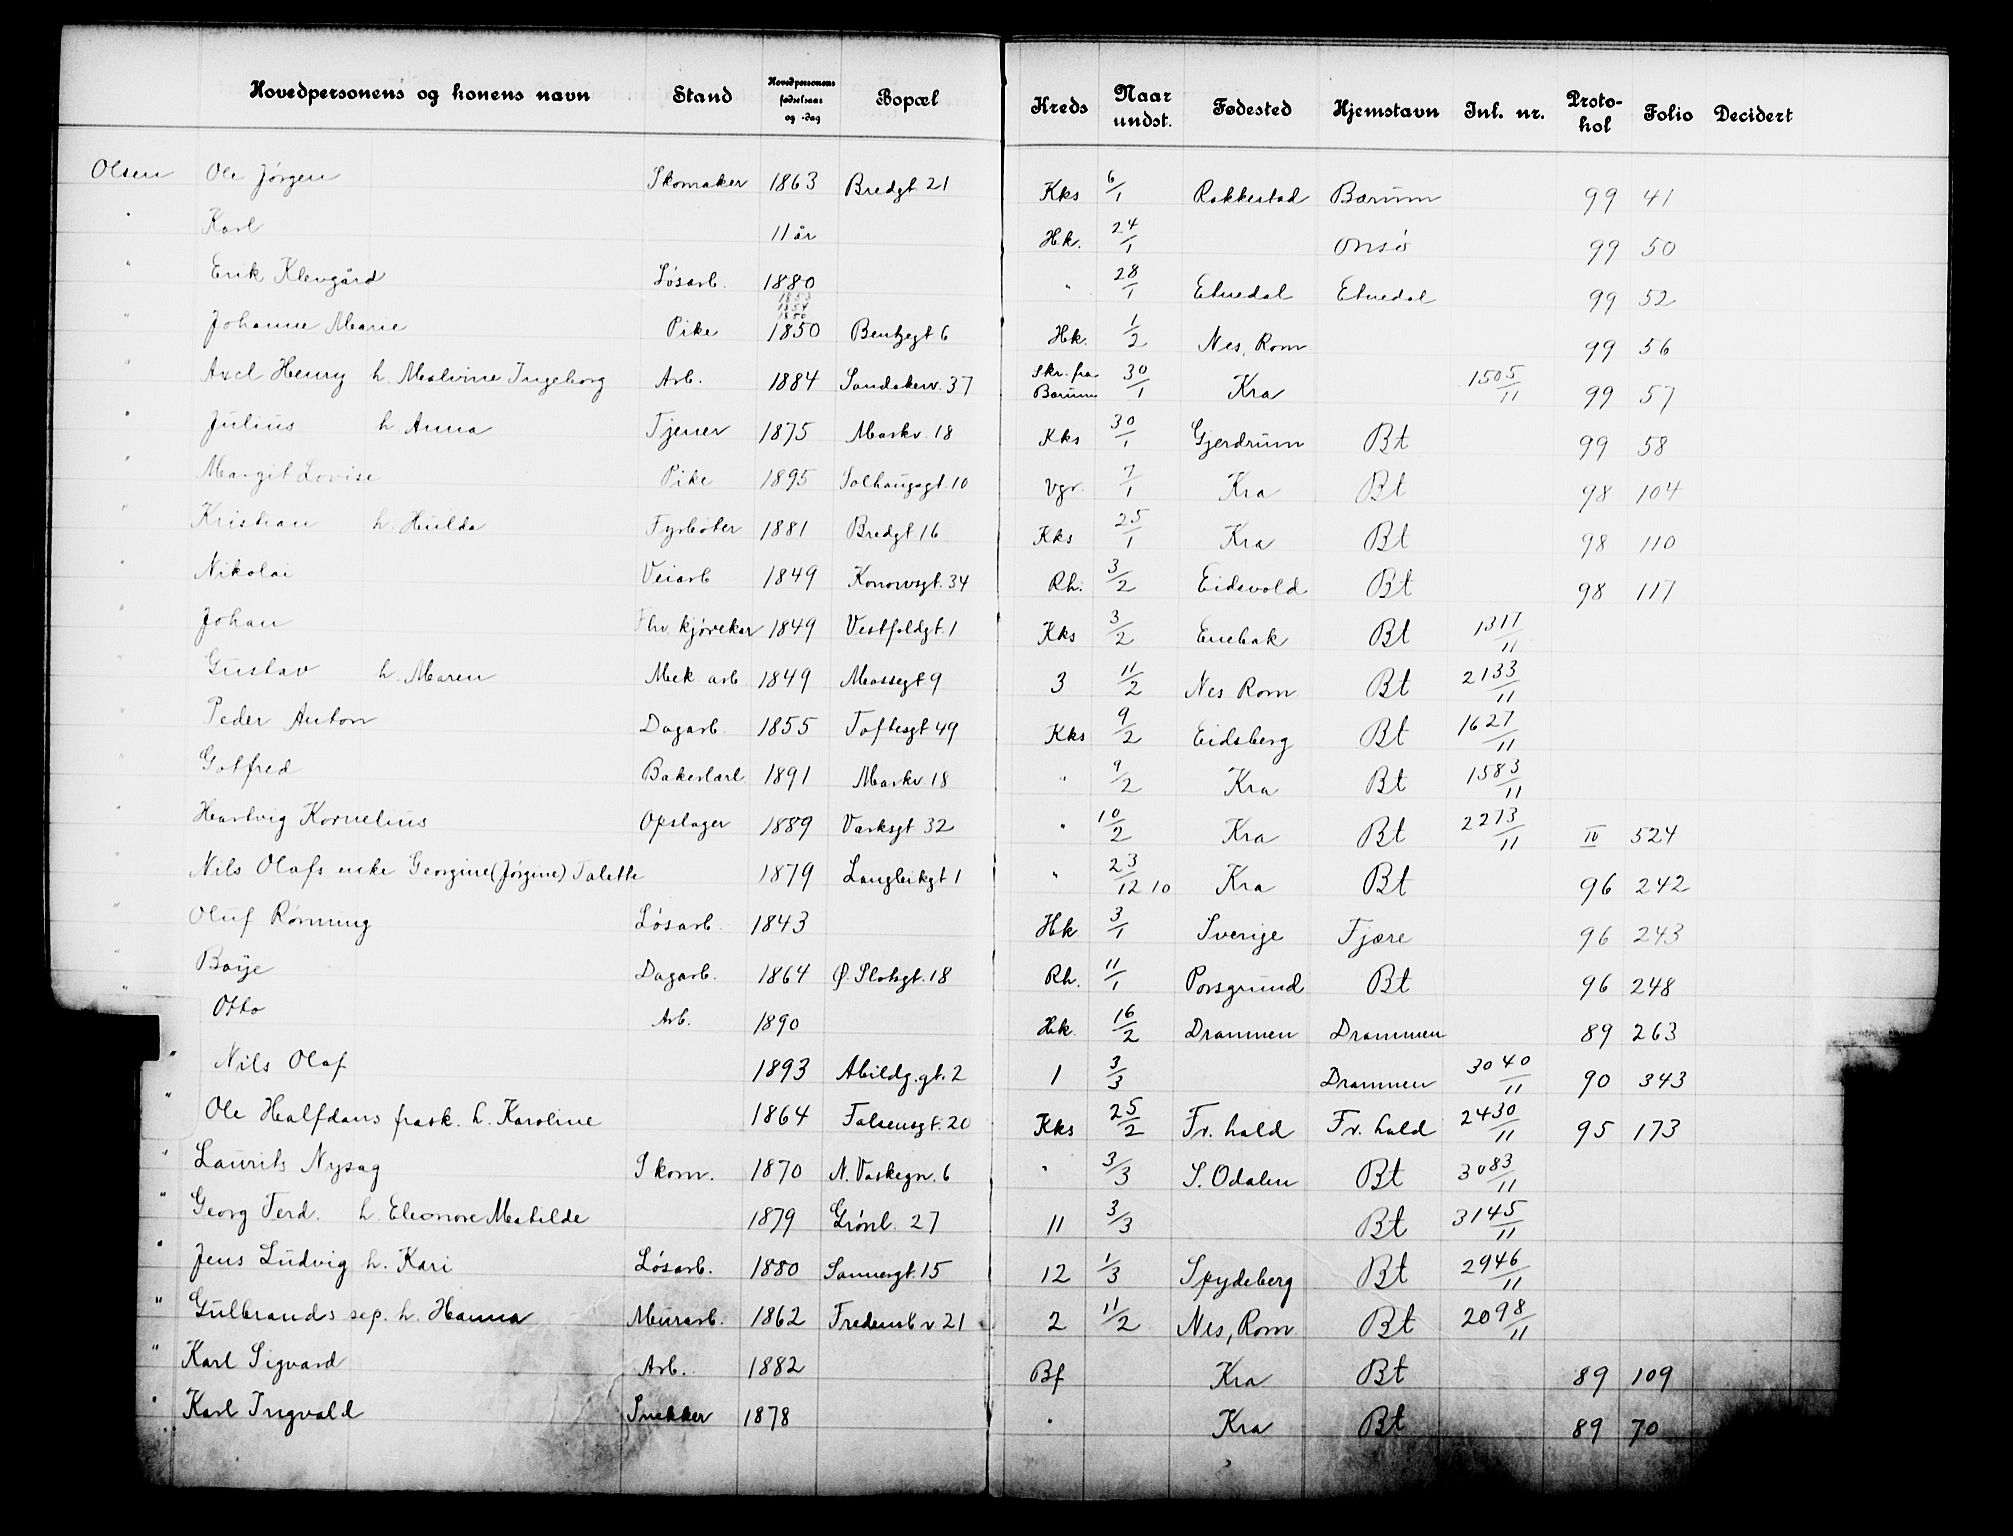 Hovedpersonens og konens navn Stand Hovedpersonens fødselsaar og -dag Bopæl Kreds Naar undst. Fødested Hjemstavn Inl. nr. Protokol Folio Decidert
Olsen Ole Jørgen Skomaker 1863 Bredgt 21 Kks 6/1 Rakkestad Bærum 99 41
" Karl 11 år Hk. 24/1 Onsø 99 50
" Erik Klevgård Løsarb. 1880 " 28/1 Etnedal Etnedal 99 52
1853
1854
1850
" Johanne Marie Pike 1850 Bentzegt 6 Hk. 1/2 Nes, Rom 99 56
" Axel Henry h. Malvine Ingeborg Arb. 1884 Sandakerv. 37 Skr. fra Bærum 30/1 Kra 1505/11 99 57
" Julius h Anna Tjener 1875 Markv. 18 Kks 30/1 Gjerdrum Bt 99 58
" Margit Lovise Pike 1895 Solhaugsgt. 10 Vgr. 7/1 Kra Bt 98 104
" Kristian h. Hulda Fyrbøter 1881 Bredgt. 16 Kks 25/1 Kra Bt 98 110
" Nikolai Veiarb 1849 Konowsgt. 34 Rh. 3/2 Eidsvold Bt 98 117
" Johan Fhv. kjørekar 1849 Vestfoldgt. 1 Kks 3/2 Enebak Bt 1317/11
" Gustav h. Maren Mek arb 1849 Mossegt. 9 3 11/2 Nes Rom Bt 2133/11
" Peder Anton Dagarb. 1855 Toftesgt 49 Kks 9/2 Eidsberg Bt 1627/11
" Gotfred Bakerlærl 1891 Markv. 18 " 9/2 Kra Bt 1583/11
" Hartvig Kornelius Opslager 1889 Verksgt 32 " 10/2 Kra Bt 2213/11 IV 524
" Nils Olafs enke Georgine (Jørgine) Talette 1879 Langleikgt 1 " 23/12 10 Kra Bt 96 242
" Oluf Rønning Løsarb. 1843 Hk 3/1 Sverige Fjære 96 243
" Boye Dagarb. 1864 Ø. Slotsgt. 18 Rh. 11/1 Porsgrund Bt 96 248
" Otto Arb. 1890 Hk. 16/2 Drammen Drammen 89 263
" Nils Olaf 1893 Abildg.gt. 2 1 3/3 Drammen 3040/11 90 343
" Ole Halfdans frask. h. Karoline 1864 Falsensgt. 20 Kks 25/2 Fr. hald Fr. hald 2430/11 95 173
" Laurits Nysag Skom. 1870 N. Vaskegn. 6 " 3/3 S. Odalen Bt 3083/11
" Georg Ferd. h. Eleonore Matilde 1879 Grønl. 27 11 3/3 Bt 3145/11
" Jens Ludvig h. Kari Løsarb. 1880 Sannergt. 15 12 1/3 Spydeberg Bt 2946/11
" Gulbrands sep. h. Hanna Murarb. 1862 Fredensb v 21 2 11/2 Nes, Rom Bt 2098/11
" Karl Sigvard Arb. 1882 Bf Kra Bt 89 109
" Karl Ingvald Snekker 1878 " Kra Bt 89 70